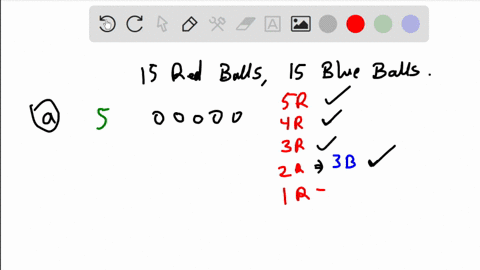 15 Red Balls, 15 Blue Balls.
a 5 0 0 0 0 0
5R ✓
4R ✓
3R ✓
2R ⇒ 3B ✓
1R -